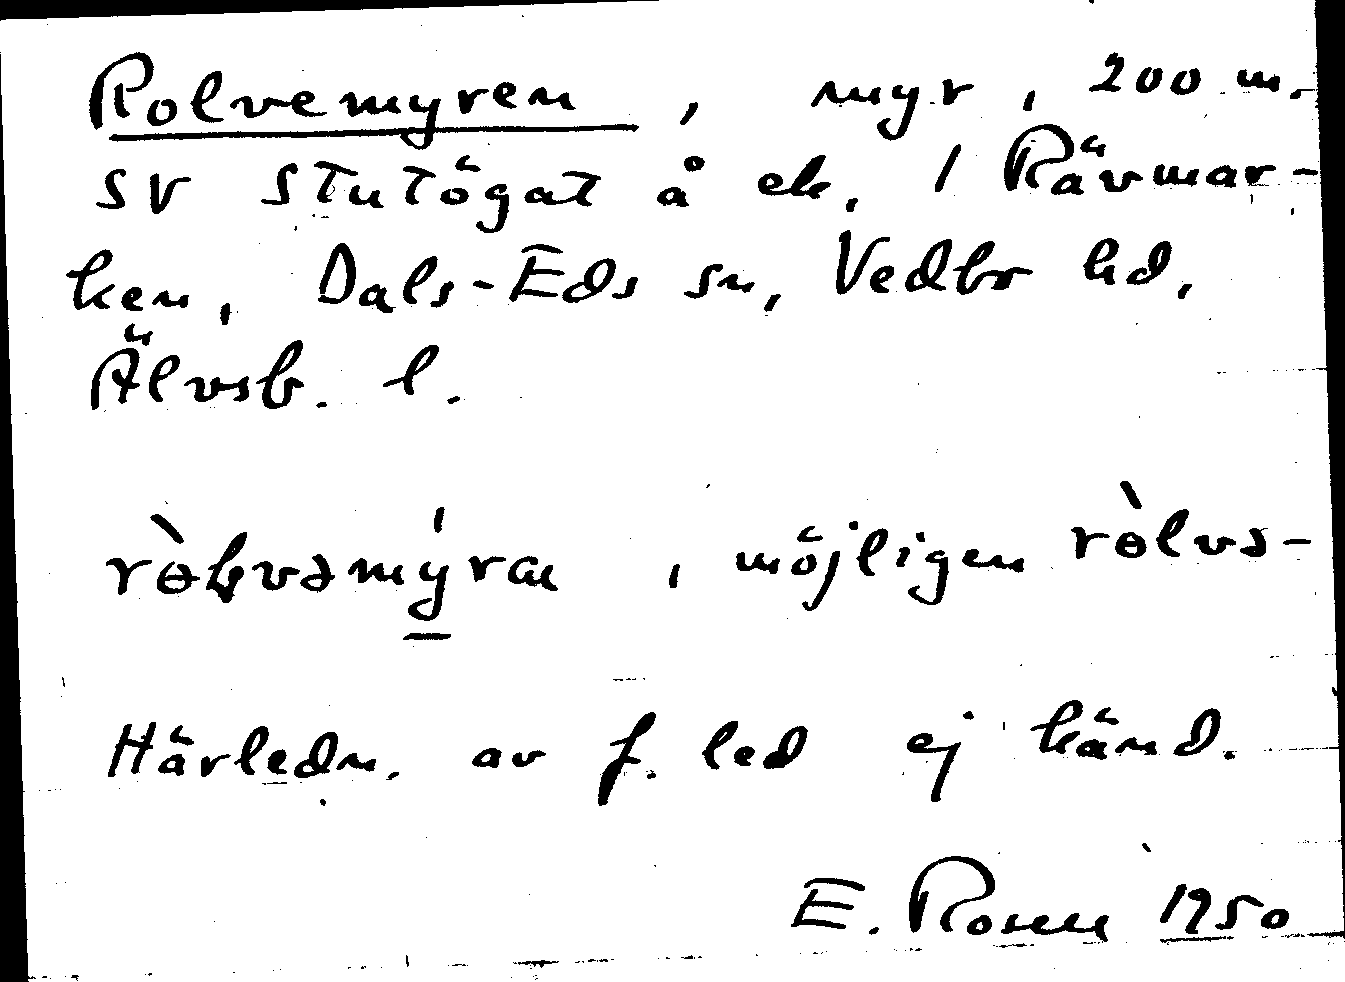 Rolvemyren, myr, 200 m.
SV Stutögat å ek. 1 Rävmar-
ken, Dals-Eds sn, Vedbo hd,
Älvsb. l.
möjligen
Härledn. av f. led ej känd.
E. Rosell 1950